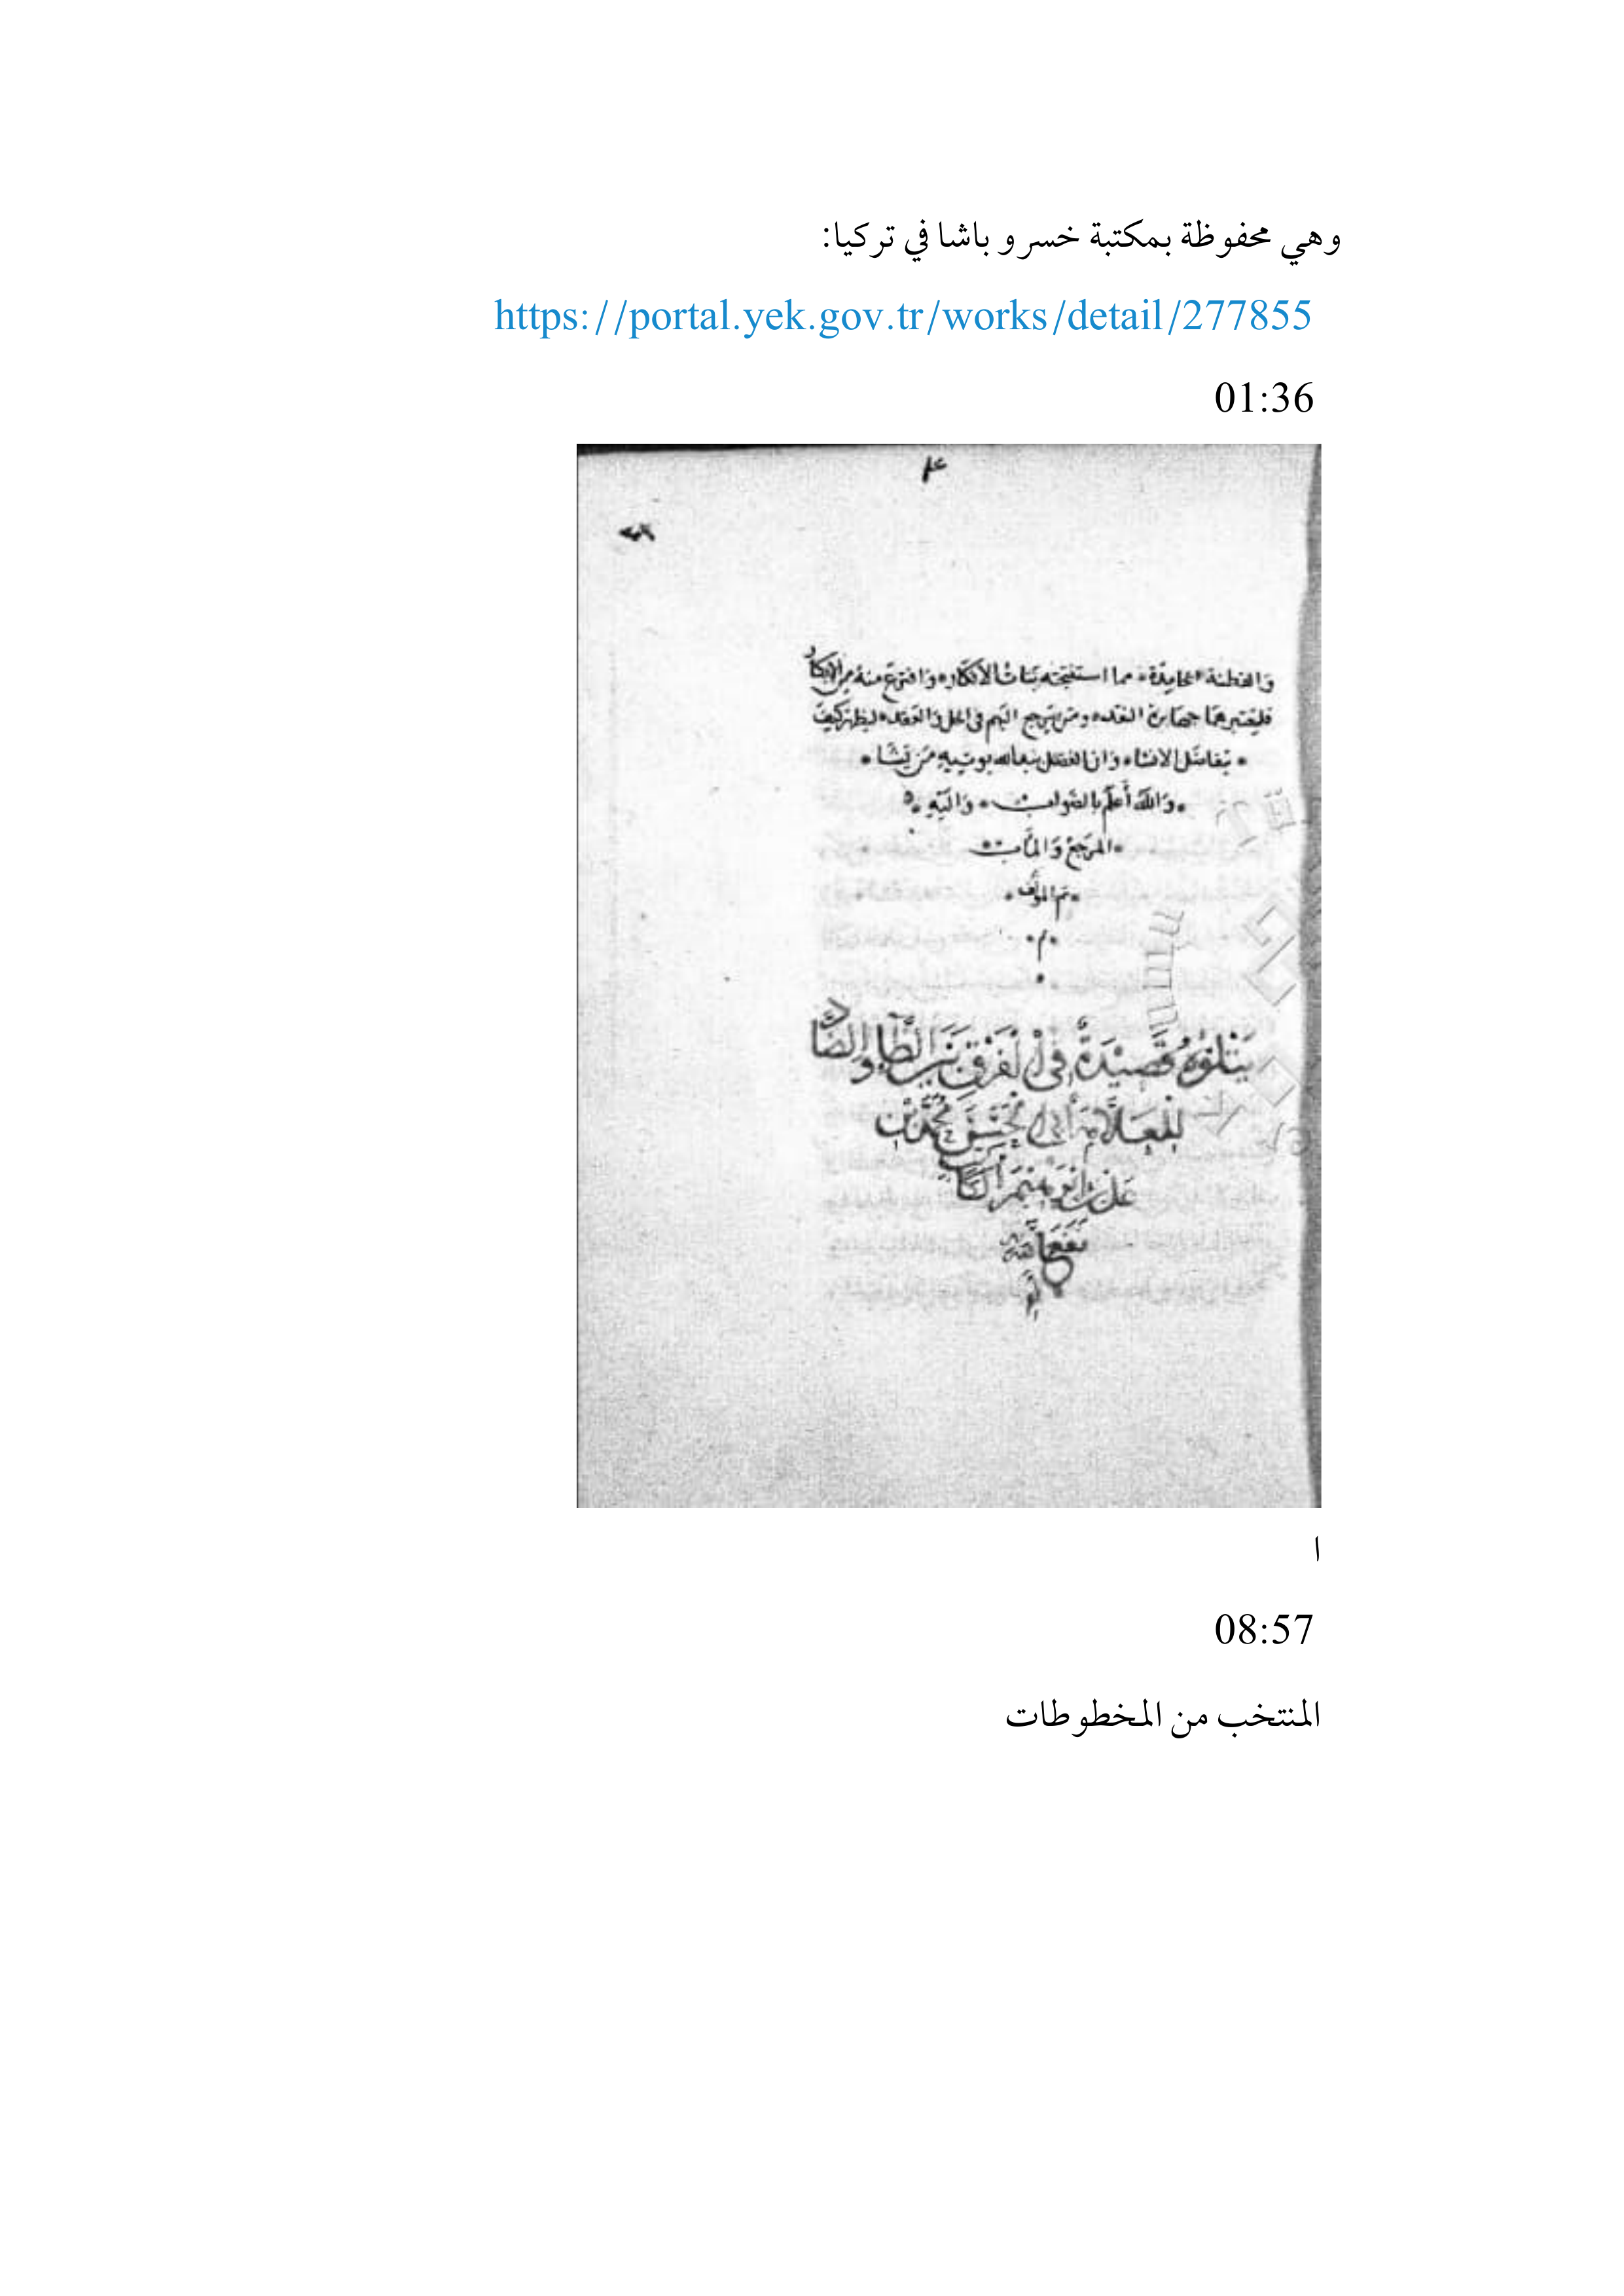 وهي محفوظة بمكتبة خسرو باشا في تركيا:
https://portal.yek.gov.tr/works/detail/277855
01:36
والفطنة الخامدة مما استفتحته بنات الافكار وافترع منه من الابكار
فليعتبرهما جهابذة النقد ومن يرجع اليهم في الحل والعقد ليظهر كيف
تفاضل الانشاء وان الفضل بيد الله يوتيه من يشاء
والله أعلم بالصواب واليه
المرجع والمآب
تم المؤلف
م
يتلوه قصيدة في الفرق بين الظاء والضاد
للعلامة أبي محمد بن
علي الكاتب
نفع الله
ا
08:57
المنتخب من المخطوطات